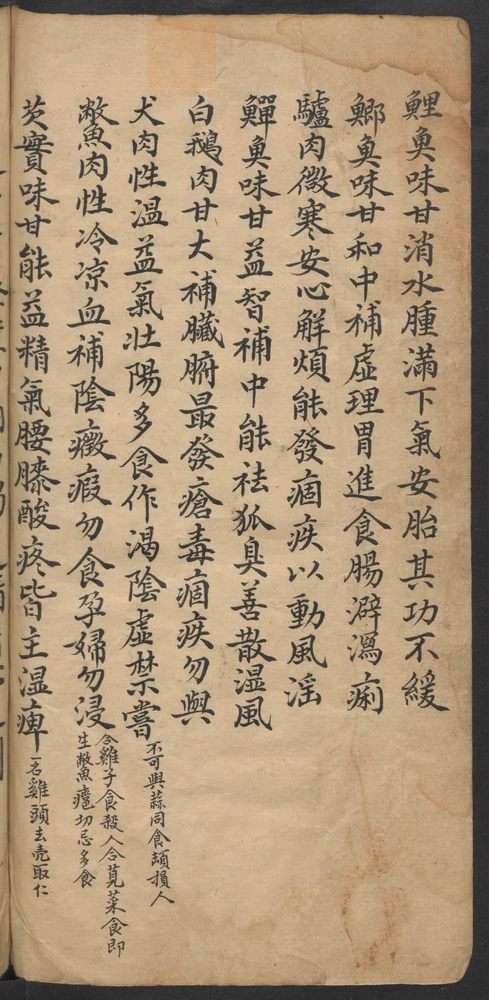 鯉魚味甘消水腫滿下氣安胎其功不緩
鯽魚味甘和中補虛理胃進食腸澼瀉痢
驢肉微寒安心解煩能發痼疾以動風淫
鱓魚味甘益智補中能祛狐臭善散濕風
白鵝肉甘大補臟腑最發瘡毒痼疾勿與
犬肉性溫益氣壯陽多食作渴陰虛禁嘗
不可與蒜同食頓損人
鱉魚肉性冷凉血補陰癥瘕勿食孕婦勿浸
合雞子食殺人合莧菜食即
生鱉魚切忌多食
芡實味甘能益精氣腰膝酸疼皆主溫痺
一名雞頭去売取仁